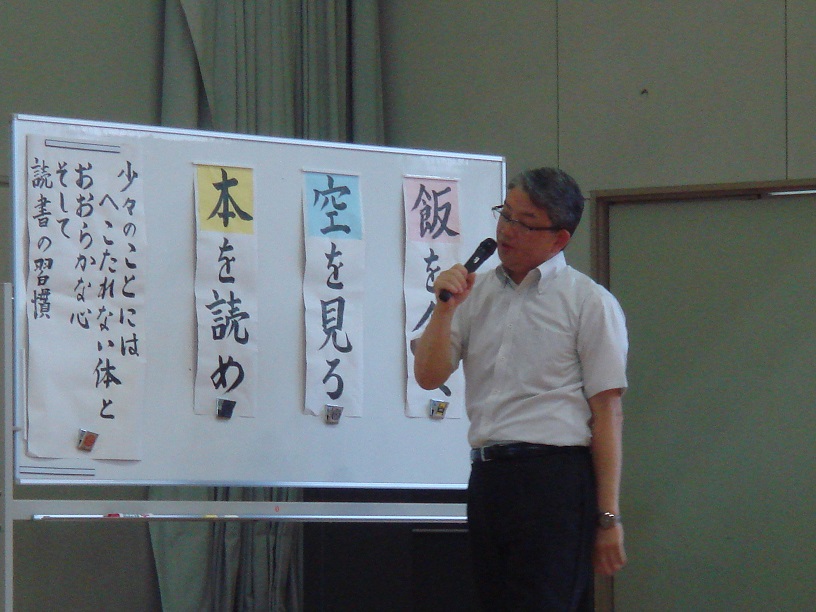 飯を
空を見ろ
本を読め
少々のことには
へこたれない体と
おおらかな心
そして
読書の習慣